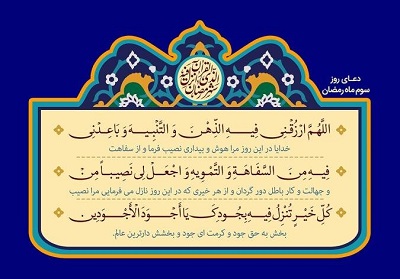 دعای روز
سوم ماه رمضان
شهر رمضان الذی انزل فیه القرآن
اللَّهُمَّ ارْزُقْنِی فِیهِ الذِّهْنَ وَ التَّنْبِیهَ وَ بَاعِدْنِی
خدایا در این روز مرا هوش و بیداری نصیب فرما و از سفاهت
فِیهِ مِنَ السَّفَاهَةِ وَ التَّمْوِیهِ وَ اجْعَلْ لِی نَصِیباً مِنْ
و جهالت و کار باطل دور گردان و از هر خیری که در این روز نازل می فرمایی مرا نصیب
کُلِّ خَیْرٍ تُنْزِلُ فِیهِ بِجُودِکَ یَا أَجْوَدَ الْأَجْوَدِینَ
بخش به حق جود و کرمت ای جود و بخشش دارترین عالم.